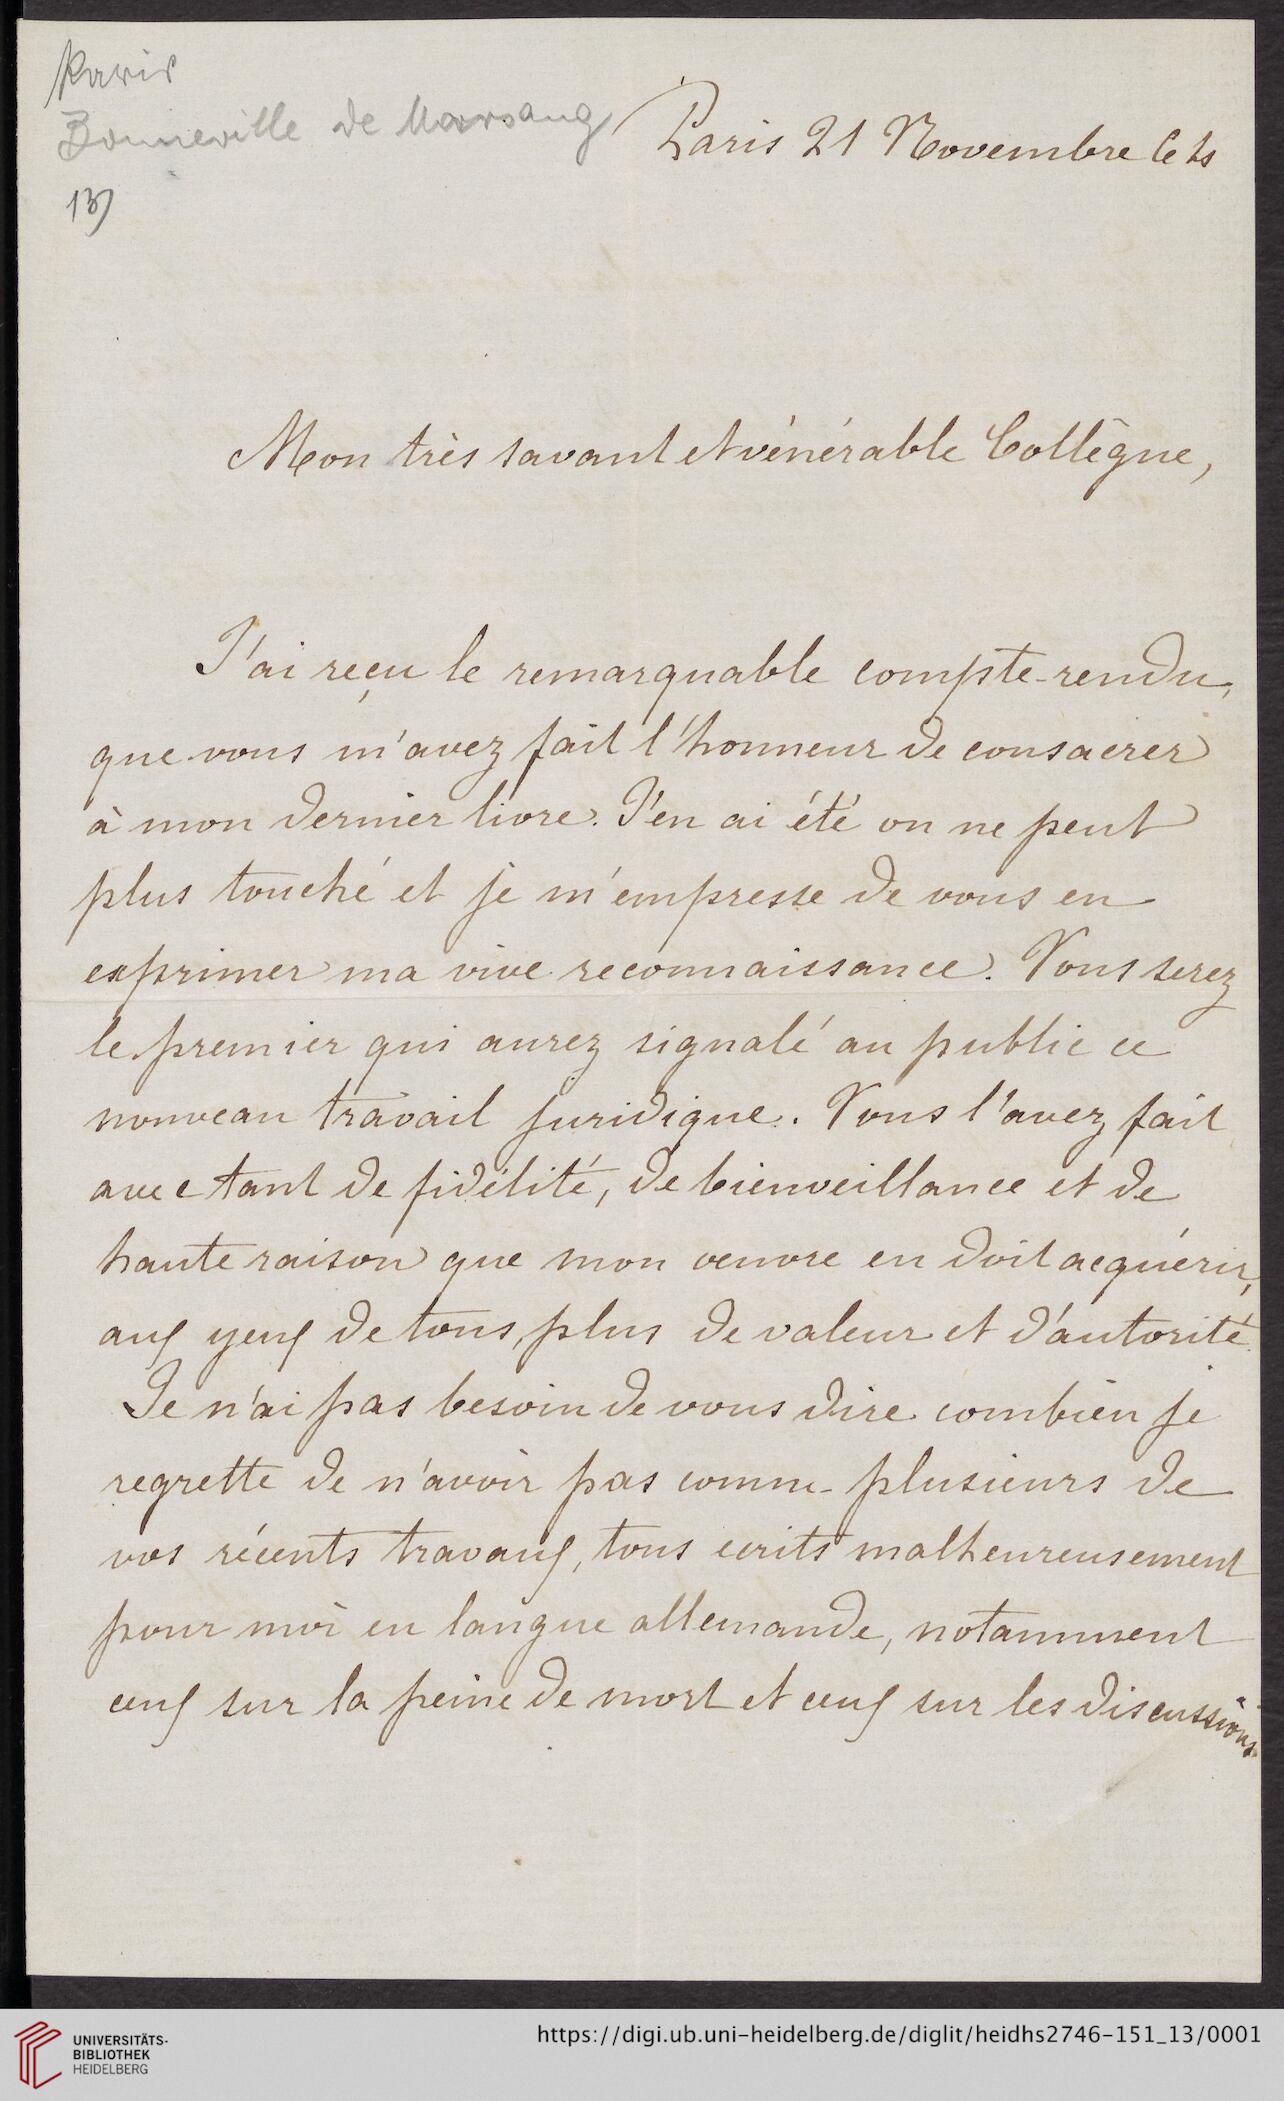 Paris
Bonneville de Marsang
13)
Paris 21 Novembre
Mon très savant et vénérable Collègue,
J'ai reçu le remarquable compte-rendu,
que vous m'avez fait l'honneur de consacrer
à mon dernier livre. J'en ai été on ne peut
plus touché et je m'empresse de vous en
exprimer ma vive reconnaissance. Vous serez
le premier qui aurez signalé au public ce
nouveau travail juridique. Vous l'avez fait
avec tant de fidélité, de bienveillance et de
haute raison que mon oeuvre en doit acquérir,
aux yeux de tous, plus de valeur et d'autorité.
Je n'ai pas besoin de vous dire combien je
regrette de n'avoir pas connu plusieurs de
vos récents travaux, tous ecrits malheureusement
pour moi en langue allemande, notamment
ceux sur la peine de mort et ceux sur les discussions
UNIVERSITÄTS-
BIBLIOTHEK
HEIDELBERG
https://digi.ub.uni-heidelberg.de/diglit/heidhs2746-151_13/0001